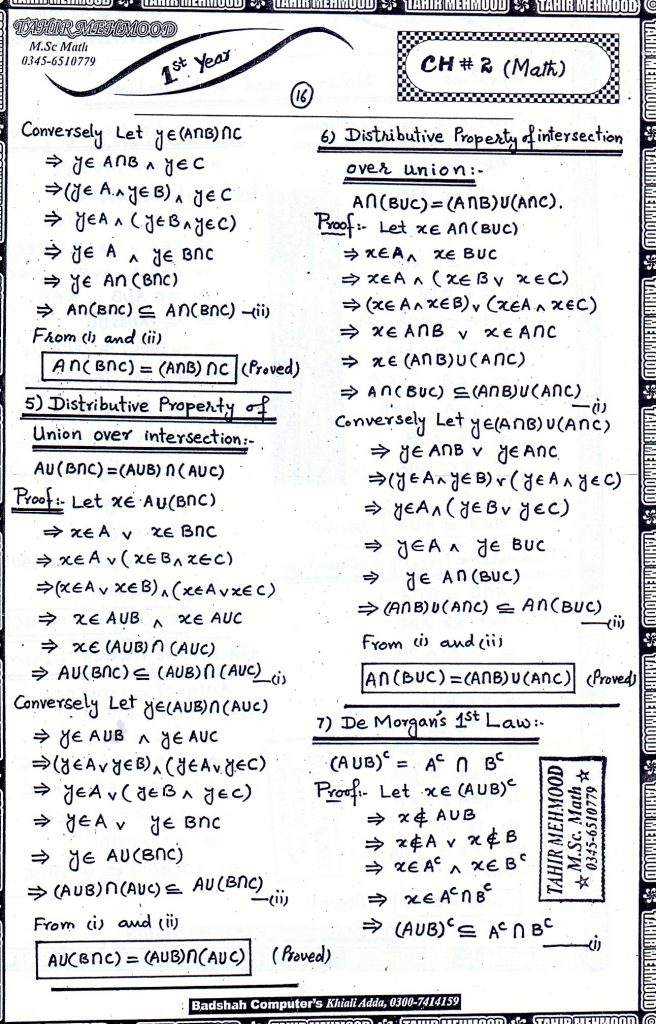 TAHIR MEHMOOD
M.Sc Math
0345-6510779
1st Year
CH # 2 (Math)
16
Conversely Let y∈(A∩B)∩C
⇒ y∈ A∩B ∧ y∈C
⇒(y∈A ∧ y∈B) ∧ y∈C
⇒ y∈A ∧ (y∈B ∧ y∈C)
⇒ y∈ A ∧ y∈ B∩C
⇒ y∈ A∩(B∩C)
⇒ A∩(B∩C) ⊆ A∩(B∩C) —(ii)
From (i) and (ii)
A∩(B∩C) = (A∩B)∩C (Proved)
5) Distributive Property of
Union over intersection:-
A∪(B∩C)=(A∪B)∩(A∪C)
Proof:- Let x∈ A∪(B∩C)
⇒ x∈A ∨ x∈ B∩C
⇒ x∈A ∨ (x∈B ∧ x∈C)
⇒(x∈A ∨ x∈B) ∧ (x∈A ∨ x∈C)
⇒ x∈ A∪B ∧ x∈ A∪C
⇒ x∈ (A∪B)∩(A∪C)
⇒ A∪(B∩C) ⊆ (A∪B)∩(A∪C) —(i)
Conversely Let y∈(A∪B)∩(A∪C)
⇒ y∈ A∪B ∧ y∈ A∪C
⇒(y∈A ∨ y∈B) ∧ (y∈A ∨ y∈C)
⇒ y∈A ∨ (y∈B ∧ y∈C)
⇒ y∈A ∨ y∈ B∩C
⇒ y∈ A∪(B∩C)
⇒ (A∪B)∩(A∪C) ⊆ A∪(B∩C) —(ii)
From (i) and (ii)
A∪(B∩C) = (A∪B)∩(A∪C) (Proved)
6) Distributive Property of intersection
over union:-
A∩(B∪C)=(A∩B)∪(A∩C).
Proof:- Let x∈ A∩(B∪C)
⇒ x∈A ∧ x∈ B∪C
⇒ x∈A ∧ (x∈B ∨ x∈C)
⇒(x∈A ∧ x∈B) ∨ (x∈A ∧ x∈C)
⇒ x∈ A∩B ∨ x∈ A∩C
⇒ x∈ (A∩B)∪(A∩C)
⇒ A∩(B∪C) ⊆ (A∩B)∪(A∩C) —(i)
Conversely Let y∈(A∩B)∪(A∩C)
⇒ y∈ A∩B ∨ y∈ A∩C
⇒(y∈A ∧ y∈B) ∨ (y∈A ∧ y∈C)
⇒ y∈A ∧ (y∈B ∨ y∈C)
⇒ y∈A ∧ y∈ B∪C
⇒ y∈ A∩(B∪C)
⇒ (A∩B)∪(A∩C) ⊆ A∩(B∪C) —(ii)
From (i) and (ii)
A∩(B∪C) = (A∩B)∪(A∩C) (Proved)
7) De Morgan's 1st Law:-
(A∪B)ᶜ = Aᶜ ∩ Bᶜ
Proof:- Let x∈ (A∪B)ᶜ
⇒ x∉ A∪B
⇒ x∉A ∨ x∉B
⇒ x∈Aᶜ ∧ x∈Bᶜ
⇒ x∈Aᶜ∩Bᶜ
⇒ (A∪B)ᶜ ⊆ Aᶜ ∩ Bᶜ —(i)
TAHIR MEHMOOD
M.Sc. Math
☆ 0345-6510779 ☆
Badshah Computer's Khiali Adda, 0300-7414159